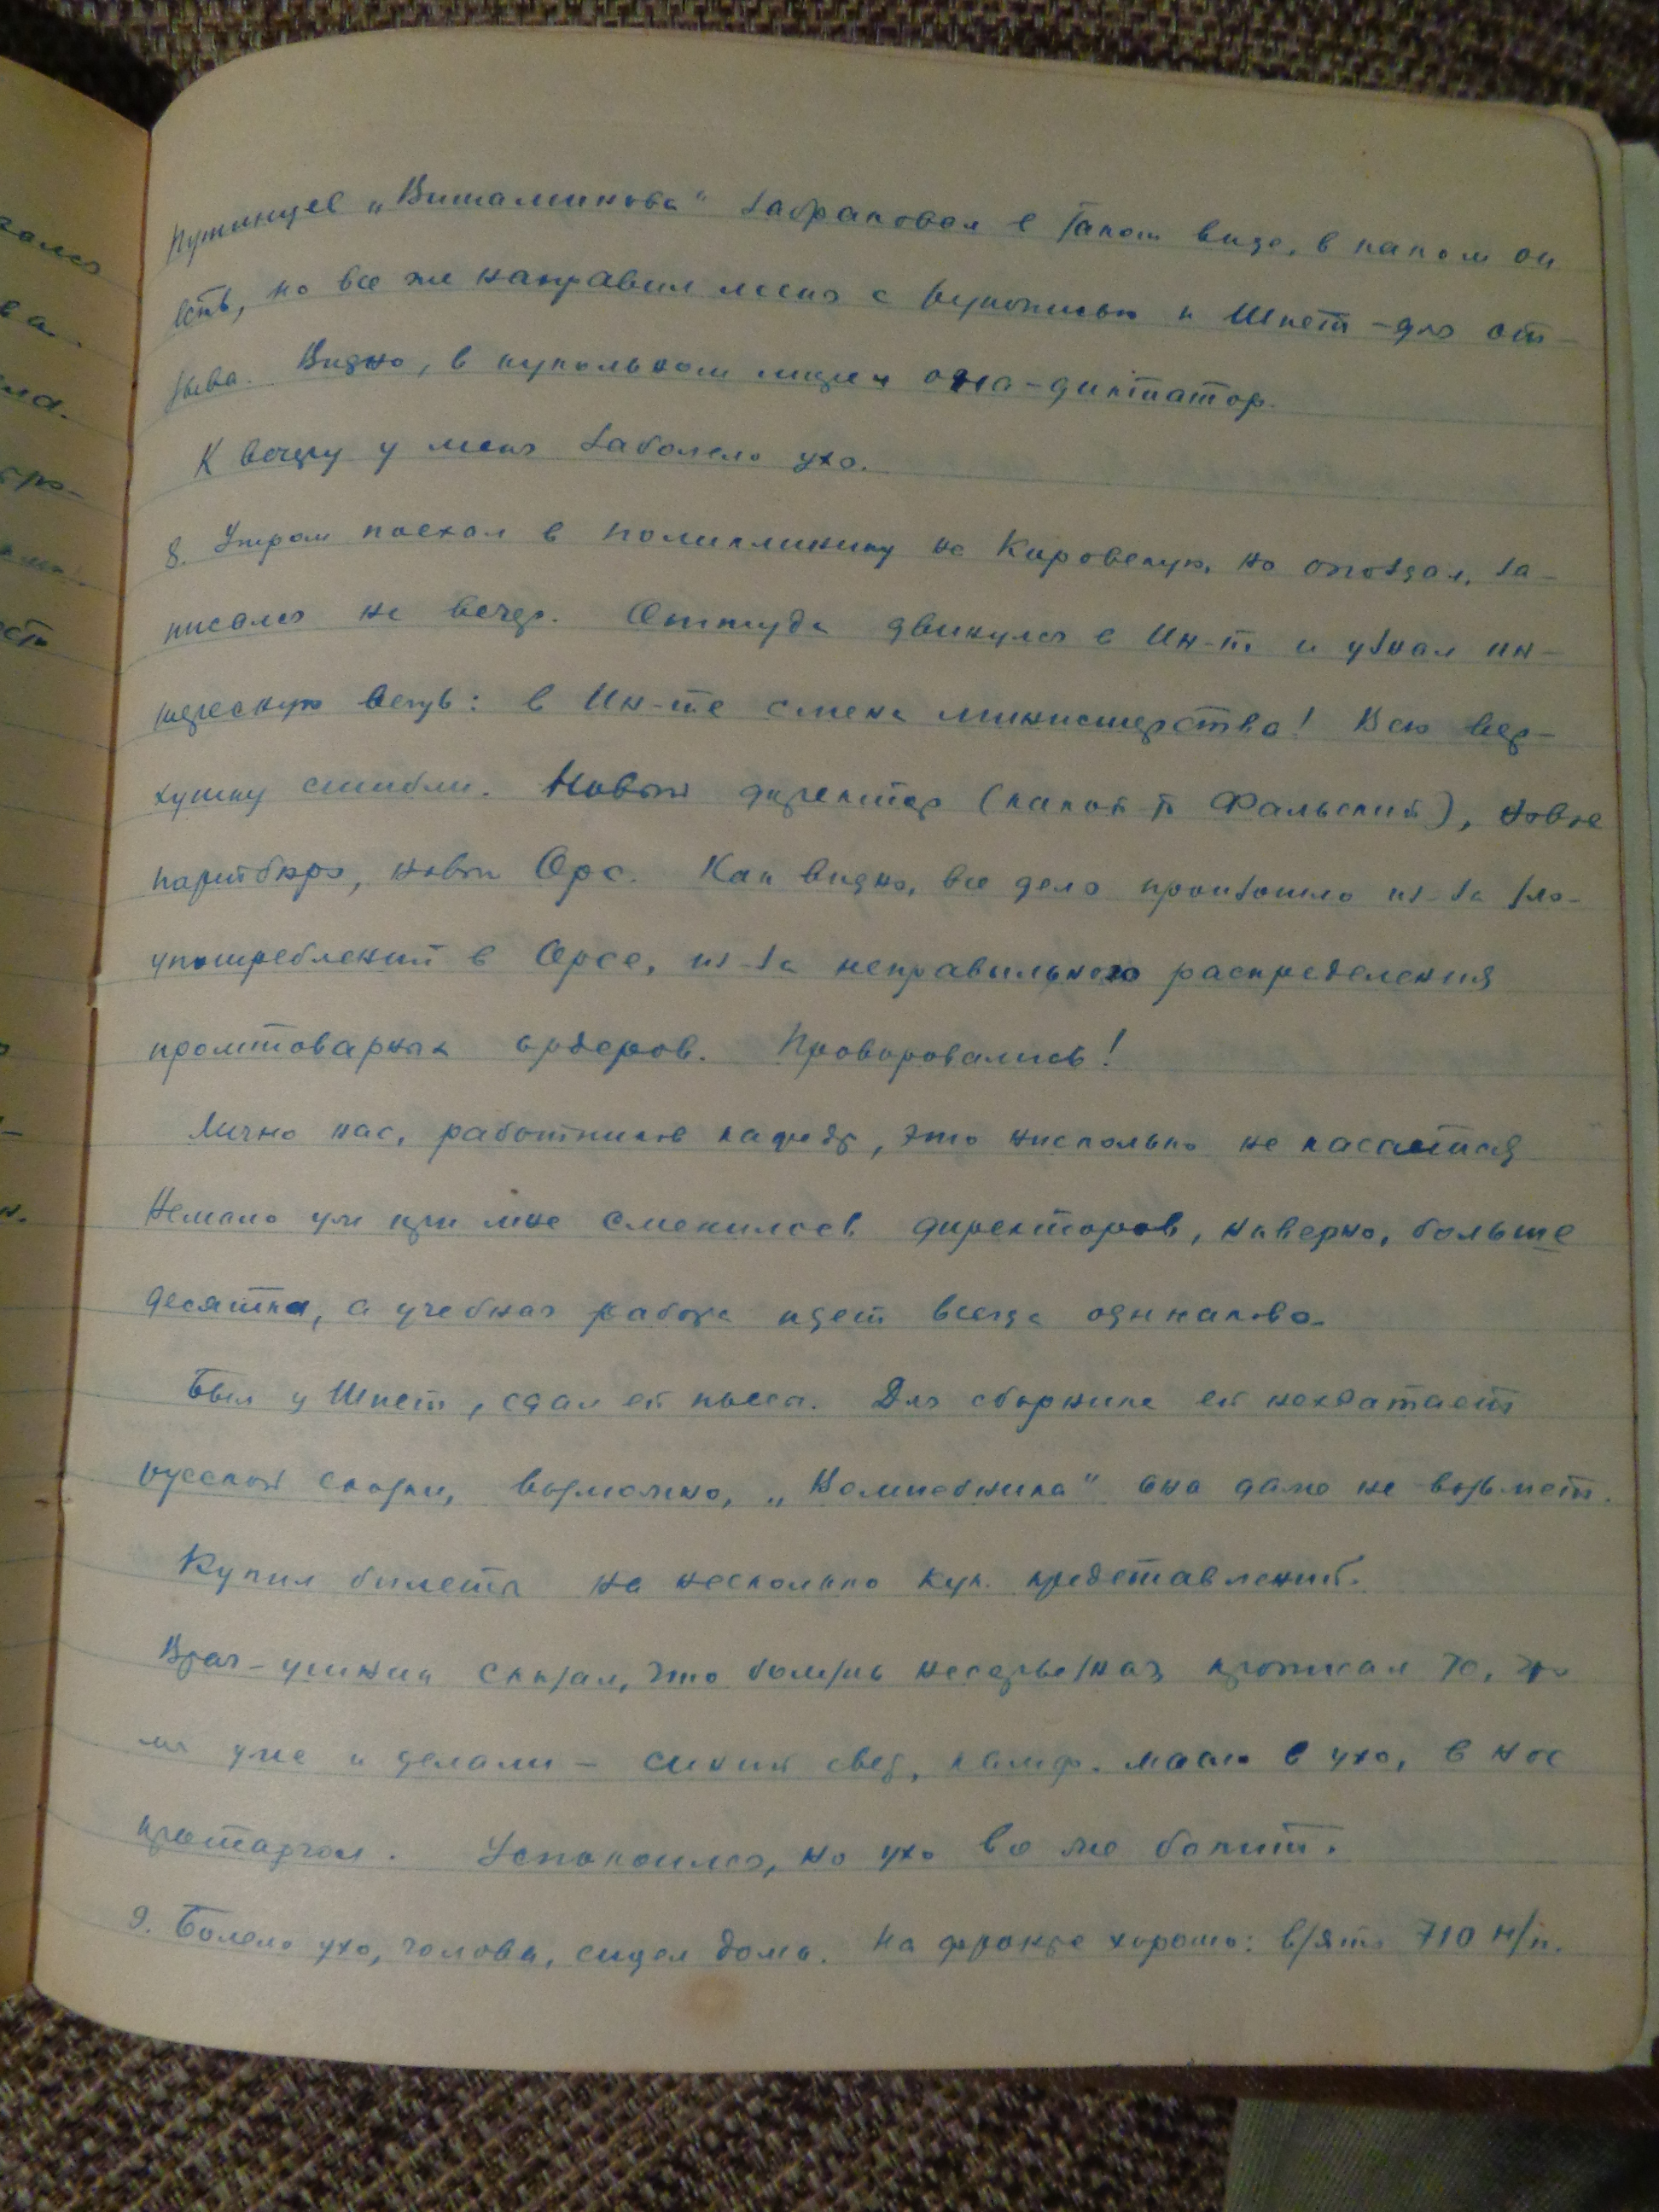 Путинцев „Витаминова" забраковал в таком виде, в каком он
есть, но все же направил меня с рукописью к Шпет - для от-
зыва. Видно, в кукольном мире она - диктатор.
К вечеру у меня заболело ухо.
8. Утром поехал в поликлинику на Кировскую, но опоздал, за-
писался на вечер. Оттуда двинулся в Ин-т и узнал ин-
тересную вещь: в Ин-те смена министерства! Всю вер-
хушку сшибли. Новый директор (какой-то Фальский), новое
партбюро, новый Орс. Как видно, все дело произошло из-за зло-
употреблений в Орсе, из-за неправильного распределения
промтоварных ордеров. Проворовались!
Лично нас, работников кафедр, это нисколько не касается
Немало уж при мне сменилось директоров, наверно, больше
десятка, а учебная работа идет всегда одинаково.
Был у Шпет, сдал ей пьесы. Для сборника ей нехватает
русской сказки, возможно, „Волшебника" она даже не возьмет.
Купил билеты на несколько кук. представлений.
Врач-ушник сказал, что болезнь несерьезная, прописал то, что
мы уже и делали - синий свет, камф. масло в ухо, в нос
протаргол. Успокоился, но ухо все же болит.
9. Болело ухо, голова, сидел дома. На фронте хорошо: взято 710 н/п.